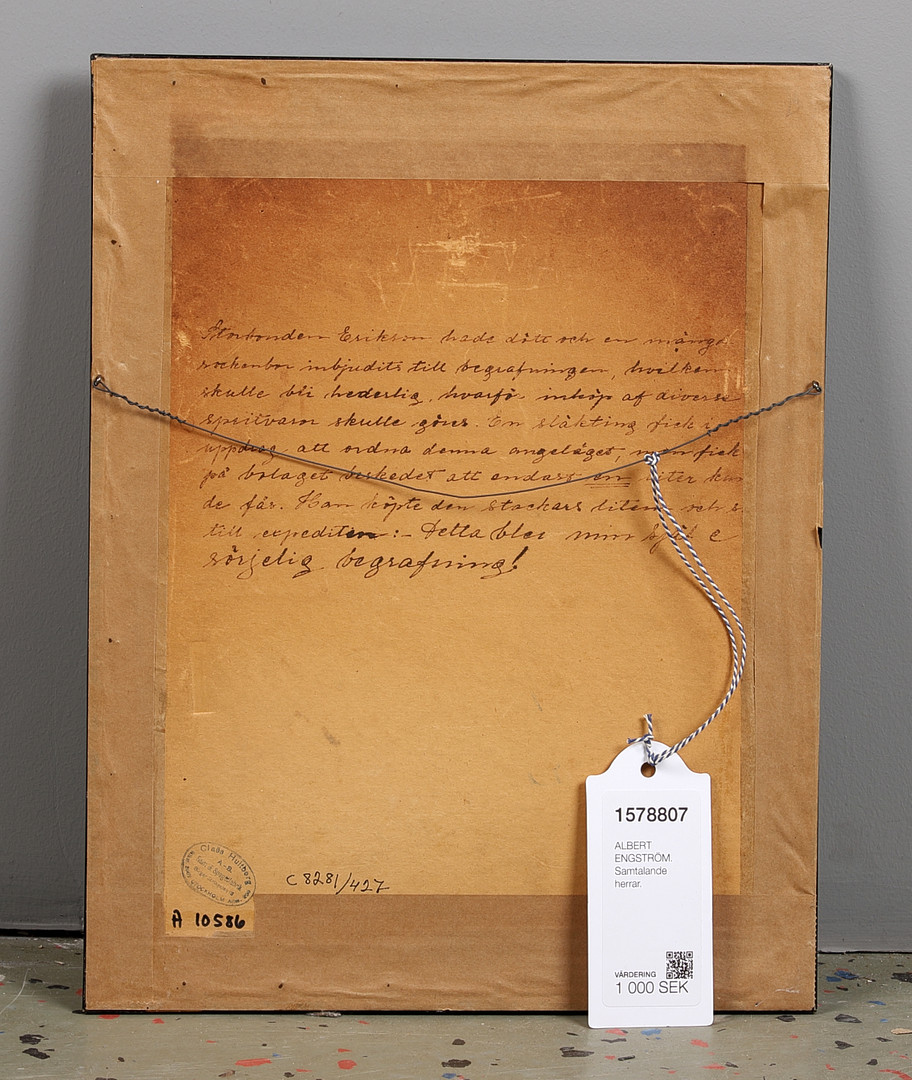 Storbonden Erikson hade dött och en mängd
sockenbor inbjudits till begrafningen, hvilken
skulle bli hederlig, hvarför inköp af diverse
spritvaror skulle göras. En släkting fick i
uppdrag att ordna denna angeläget, men fick
på bolaget beskedet att endast en liter kun
de fås. Han köpte den stackars litern och s
till expediten: - Detta blev min själ e
sörjelig begrafning!
Claës Hultberg
A.-B.
STOCKHOLM
C8281/427
A 10586
1578807
ALBERT
ENGSTRÖM.
Samtalande
herrar.
VÄRDERING
1 000 SEK